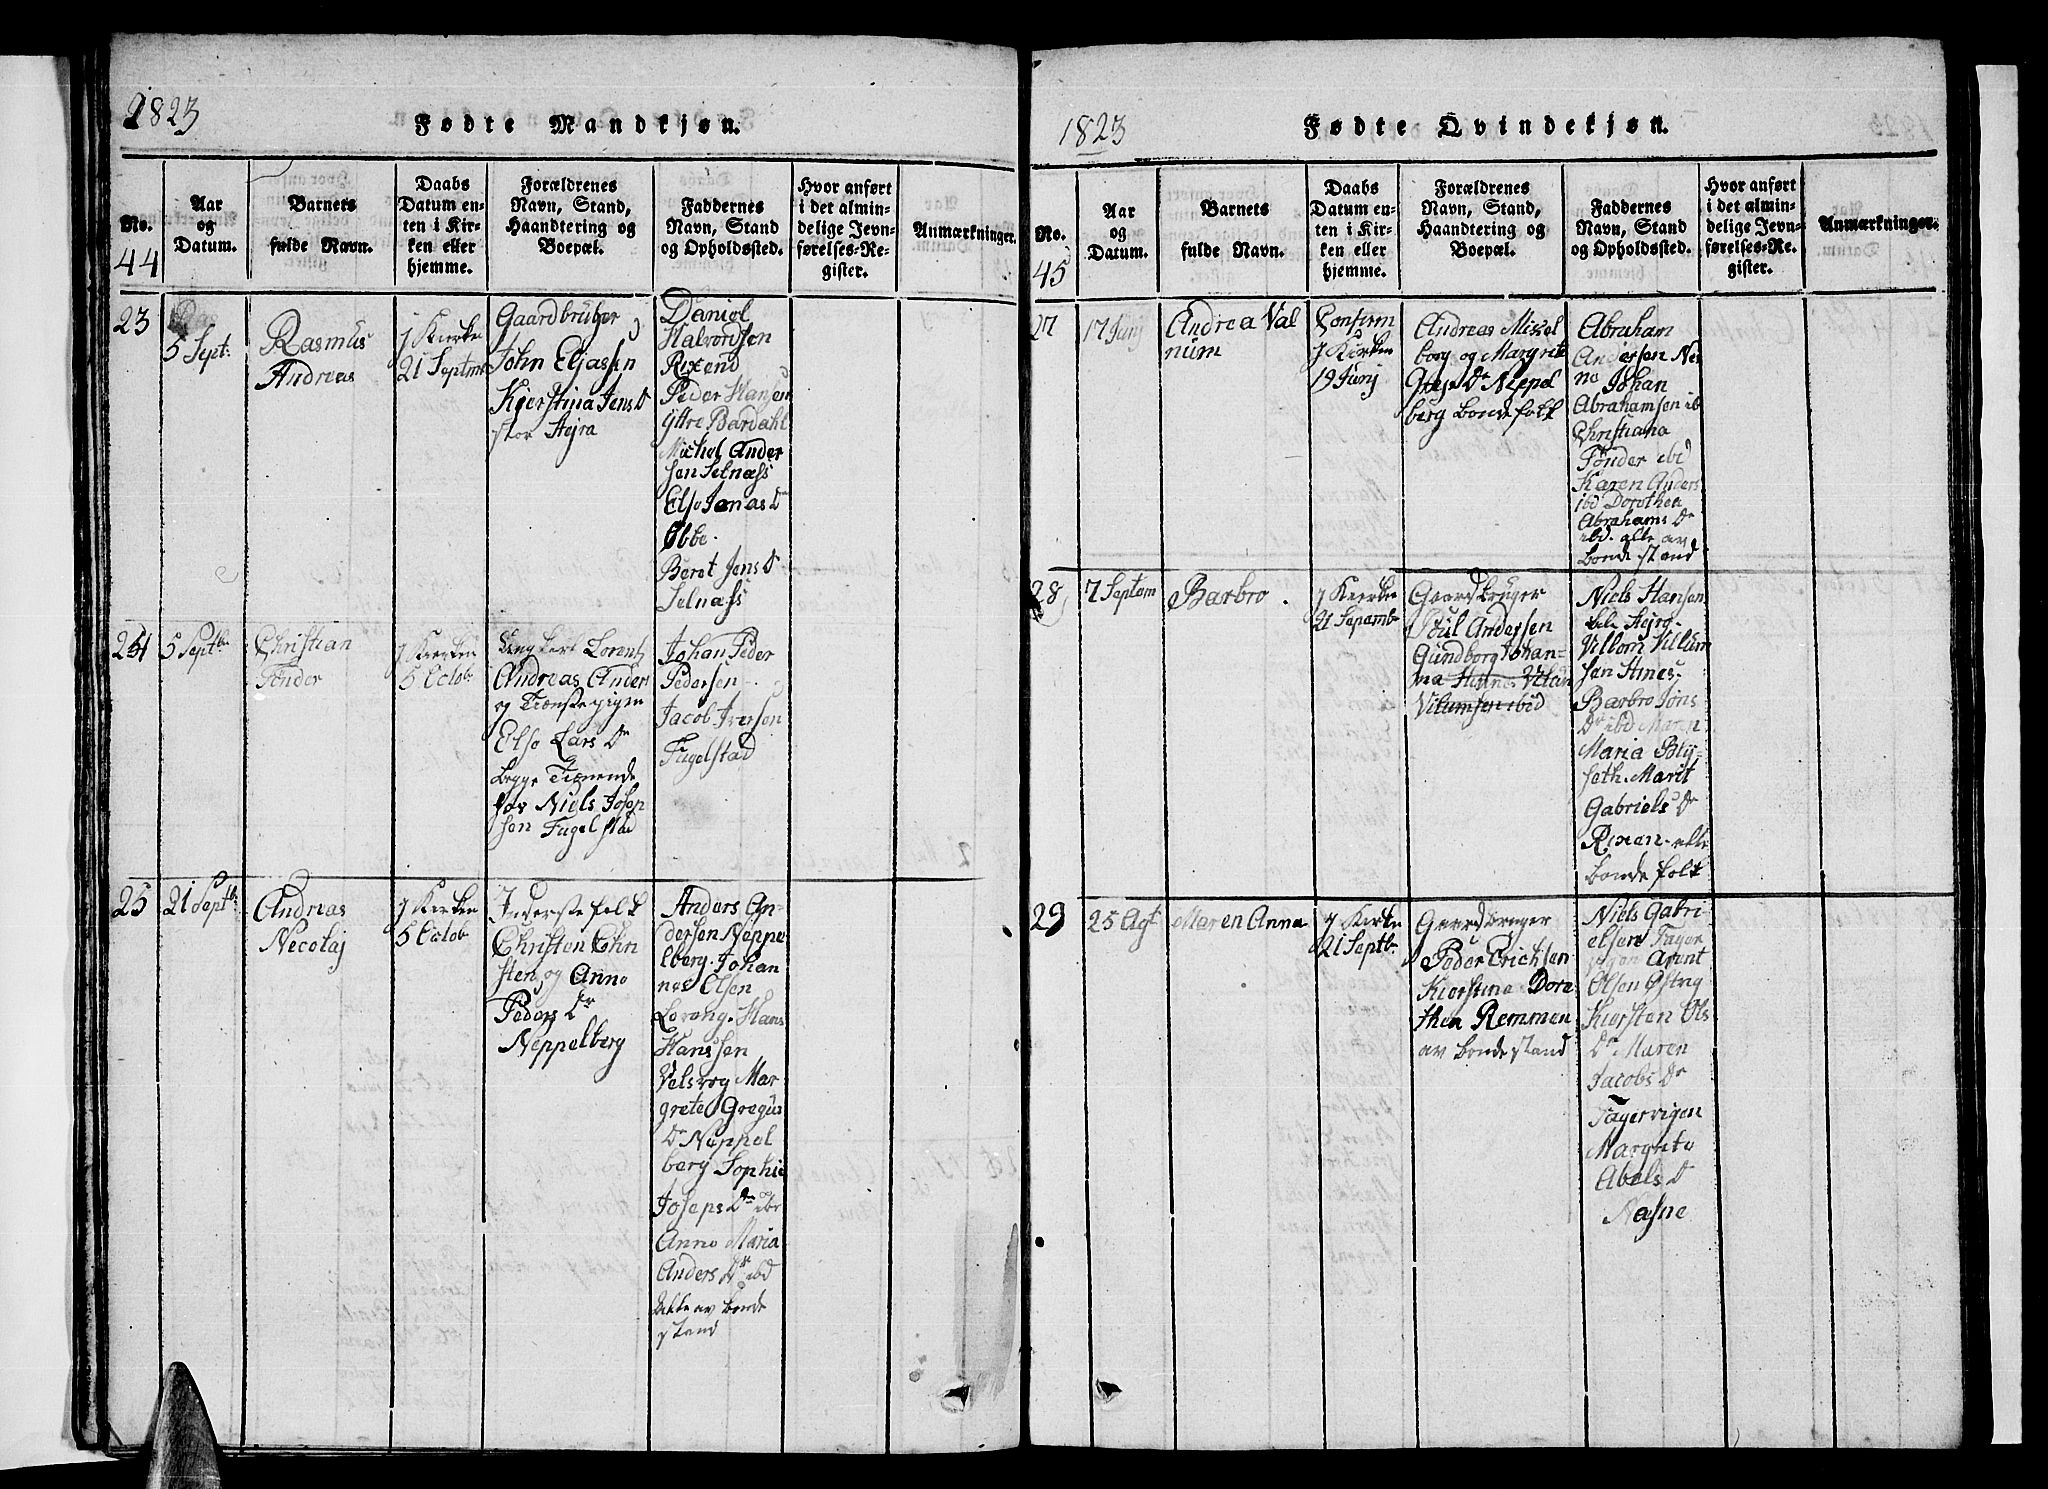 1823
Fødte Mandkjøn.
No.
44
Aar
og
Datum.
Barnets
fulde Navn.
Daabs
Datum en-
ten i Kir-
ken eller
hjemme.
Forældrenes
Navn, Stand,
Haandtering og
Boepæl.
Faddernes
Navn, Stand
og Opholdssted.
Hvor anført
i det almin-
delige Jevn-
førelses-Re-
gister.
Anmærkninger.
23
5 Sept:
Rasmus
Andreas
J Kirke
21 Septmr
Gaardbruger
John Eljassen
Kierstina Jens D
stor Hejra
Daniel
Halvordsen
Rixend
Peder Hansen
Yttre Bardahl
Michel Ander
sen Selnæss
Else Jonas Dr
Ebbe.
Beret Jens Dr
Selnæss
24
5 Septbr
Christian
Tønder
J Kirken
5 Octobr
Ungkarl Lorents
Andreas Ander
og Tienstepigen
Else Lars Dr
begge Tienende
hos Niels Josep
sen Fugelstad
Johan Peder
Pedersen
Jacob Iversen
Fugelstad
25
21 Septbr
Andreas
Necolaj
J Kirken
5 Octob
Inderste folk
Christen Chri
sten og Anne
Peders Dr
Neppelberg
Anders An-
dersen Neppe
lberg. Johan
nes Olsen
Lorang. Hans
Hanssen
Velsvog Mar
grete Gregus
Dr Neppel
berg Sophie
Joseps Dr ibr
Anne Maria
Anders Dr ibd
alle av bonde
stand
1823
Fødte Qvindekjøn.
No.
45
Aar
og
Datum.
Barnets
fulde Navn.
Daabs
Datum en-
ten i Kir-
ken eller
hjemme.
Forældrenes
Navn, Stand,
Haandtering og
Boepæl.
Faddernes
Navn, Stand
og Opholdssted.
Hvor anført
i det almin-
delige Jevn-
førelses-Re-
gister.
Anmærkninger.
27
17 Junj
Andrea Val
num
Confirm
J Kirken
19 Junj
Andreas Missel
borg og Margrete
Dr Neppel
berg bondefolk
Abraham
Andersen Nes
na Johan
Abrahamsen ib
Christiana
Tønder ibd
Karen Anders
ibd Dorothea
Abrahams Dr
ibd. alle av
bonde stand
28
7 Septem
Barbro
J Kirken
21 Sepembr
Gaardbruger
Poul Andersen
Gundborg Johan-
na
Vilumsen ibid
Niels Hansen
lile Hejra
Villom Villum
sen Hnes
Barbro Jons
Dr ibd Maren
Maria Blÿ
seth. Marit
Gabriels Dr
Rixen. alle
bonde folk
29
25 Agt
Maren Anna
J Kirke
21 Septbr
Gaardbruger
Peder Erichsen
Kierstina Doro
thea Remmen
av bonde stand
Niels Gabri
elsen Fager
vigen Arent
Olsen Østvig
Kiersten Ols
Dr Maren
Jacobs Dr
Fagervigen
Margrete
Abels Dr
Næsne